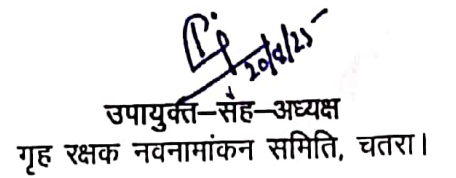 20/9/25
उपायुक्त–सह–अध्यक्ष
गृह रक्षक नवनामांकन समिति, चतरा।